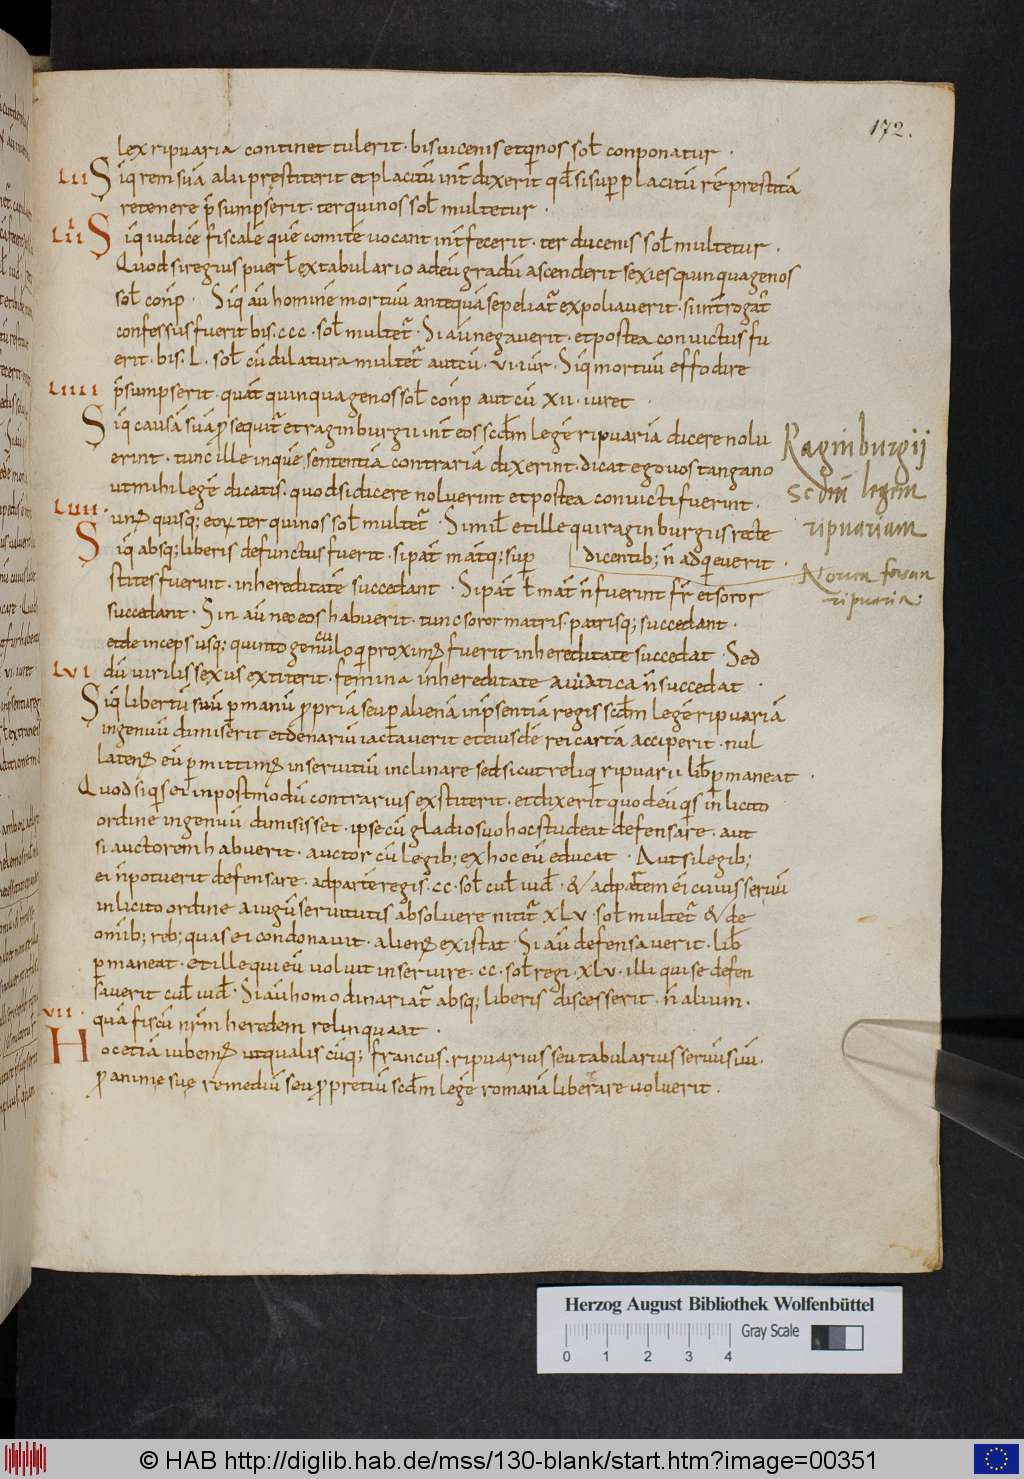 172.
lex ripuaria continet tulerit · bis uicenis et q̇nos sol̄ conponatur ·
LII Siq̇ rem suā alii pręstiterit et placitū int̄ dixerit qđ si sup̱ placitū rē prestitā
retenere p̄sumpserit · ter quinos sol̄ multetur ·
LIII Siq̇ iudicē fiscalē quē comitē uocant int̄fecerit · ter ducenis sol̄ multetur ·
Quod si regius puer ł ex tabulario ad eū gradū ascenderit sexies quinquagenos
sol̄ conp̄ · Siq̇ aū hominē mortuū antequā sepeliat̄ expoliauerit · si int̄rogat̄
confessus fuerit bis · ccc · sol̄ multet̄ · Si aū negauerit · et postea conuictus fu
erit · bis · L · sol̄ cū dilatura multet̄ aut cū · VI · iur̄ · Siq̇ mortuū effodire
LIIII p̄sumpserit · quat̄ quinquagenos sol̄ conp̄ aut cū XII · iuret ·
Siq̇ causā suā ꝓsequit̄ et raginburgii int̄ eos scđm legē ripuariā dicere nolu
erint · tunc ille in quē sententiā contrariā dixerint · dicat ego uos tangano
ut mihi legē dicatis · quod si dicere noluerint et postea conuicti fuerint ·
LIIII · unꝰ quisq; eoꝝ ter quinos sol̄ multet̄ · Simil̄ et ille qui raginburgiis recte
Siq̇ absq; liberis defunctus fuerit · si pat̄ mat̄q; sup̱ dicentib; n̄ adq̇euerit ·
stites fuerunt · in hereditatē succedant · Si pat̄ ł mat̄ n̄ fuerint fr̄ et soror
succedant · Sin aū nec eos habuerit · tunc soror matris patrisq; succedant ·
et deinceps usq; quinto genuculo q̇ proximꝰ fuerit in hereditate succedat · Sed
LVI dū uirilis sexus extiterit · femina in hereditate auiatica n̄ succedat ·
Siq̇ libertū suū p̱ manū ꝓpriā seu p̱ alienā in p̄sentia regis scđm legē ripuariā
ingenuū dimiserit et denariū iactauerit et eiusdē rei cartā acciperit · nul
latenꝰ eū p̱mittimꝰ in seruitiū inclinare sed sicut reliq̇ ripuarii lib̄ p̱maneat ·
Quod siq̇s ei in postmodū contrarius exstiterit · et dixerit quod eū q̇s inlicito
ordine ingenuū dimisisset · ipse cū gladio suo hoc studeat defensare · aut
si auctorem habuerit · auctor cū legib; ex hoc eū educat · Aut si legib;
ei n̄ potuerit defensare · ad partē regis · cc · sol̄ cul̄ iuđ · & ad patrem ei cuius seruū
inlicito ordine a iugū seruitutis absoluere nitit̄ XLV · sol̄ multet̄ & de
omīb; reb; quas ei condonauit · alienꝰ existat · Si aū defensauerit · lib̄
p̱maneat · et ille qui eū uoluit inseruire · cc · sol̄ regi · XLV · illi qui se defen
sauerit cul̄ iuđ · Si aū homo dinariat̄ absq; liberis discesserit · n̄ alium ·
VII · quā fiscū nr̄m heredem relinquaat ·
Hoc etiā iubemꝰ ut qualiscūq; francus · ripuarius seu tabularius seruū suū ·
ꝓ animę suę remediū seu ꝓ pretiū scđm legē romanā liberare uoluerit ·
Raginburgii
scđm legem
ripuariam
ripuaria
Herzog August Bibliothek Wolfenbüttel
Gray Scale
0 1 2 3 4
© HAB http://diglib.hab.de/mss/130-blank/start.htm?image=00351